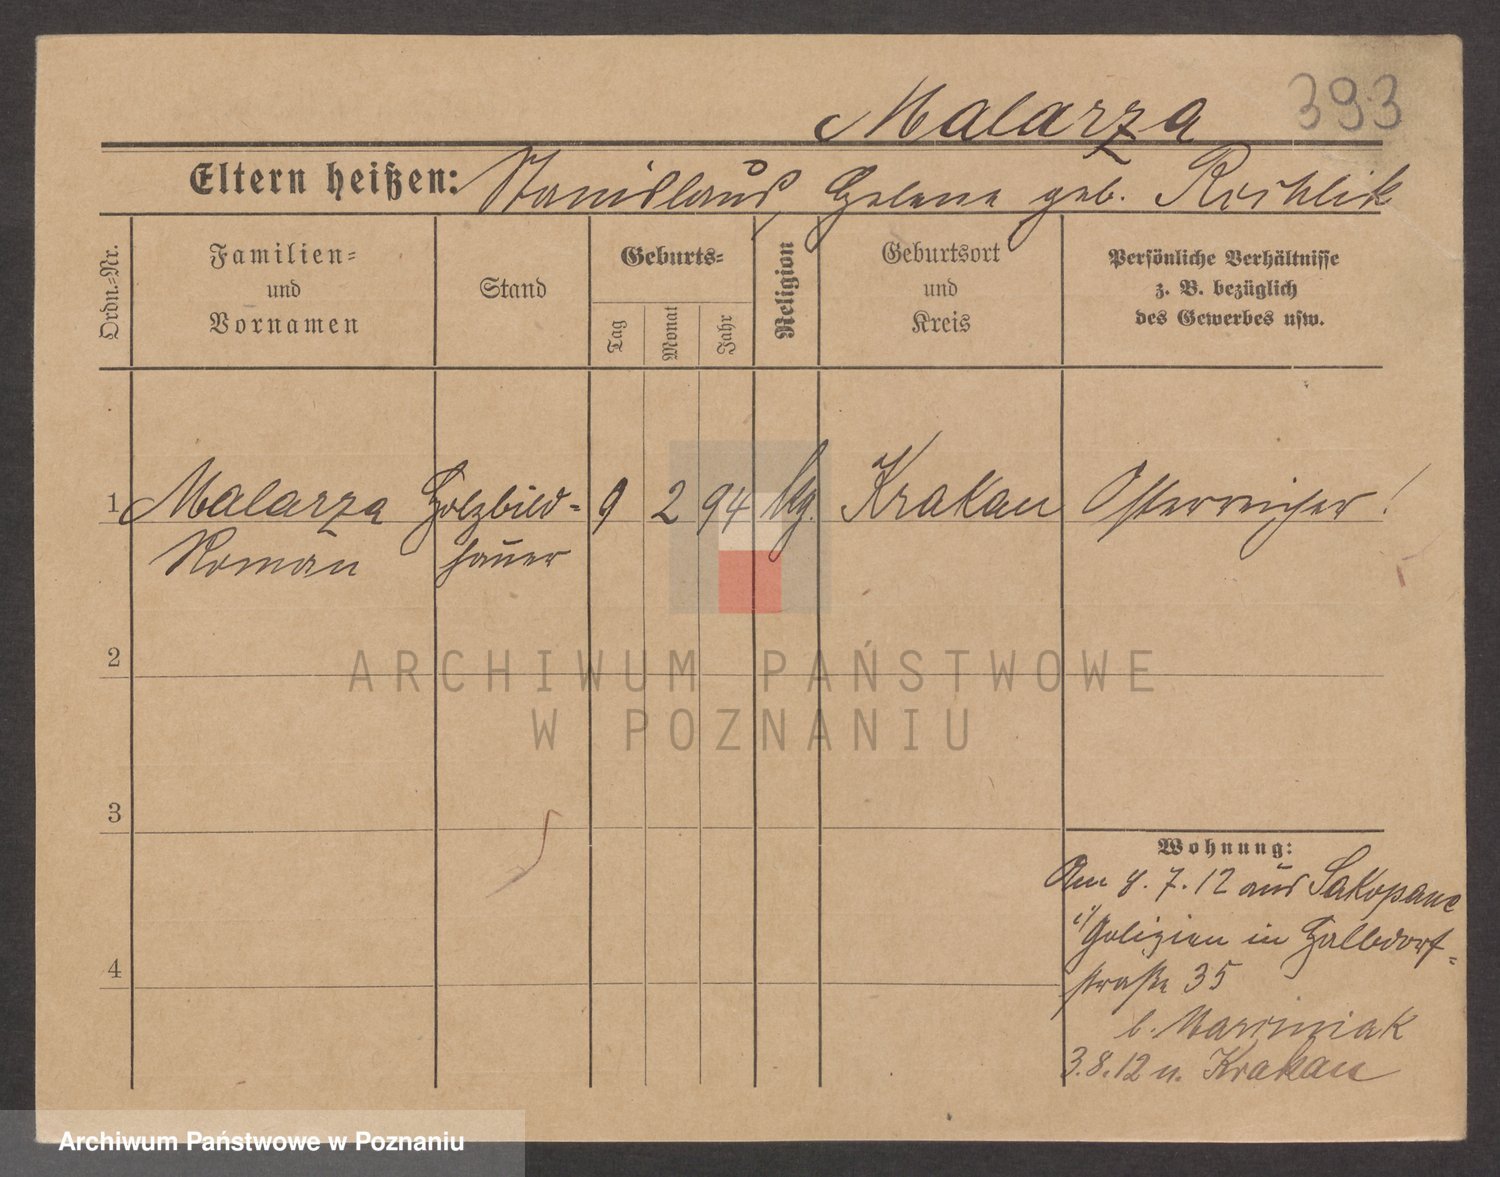 Malarza 393
Eltern heißen: Stanislaus, Helene geb.
Ordn.-Nr.
Familien-
und
Vornamen
Stand
Geburts-
Tag
Monat
Jahr
Religion
Geburtsort
und
Kreis
Persönliche Verhältnisse
z. B. bezüglich
des Gewerbes usw.
1 Malarza Holzbild- 9 2 94 Krakau Österreicher!
Roman hauer
2
ARCHIWUM PAŃSTWOWE
W POZNANIU
3
Wohnung:
Am 8.7.12 aus Sakopane
i/Galizien in Halbdorf-
4
straße 35
b. Marciniak
3.8.12 n. Krakau
Archiwum Państwowe w Poznaniu